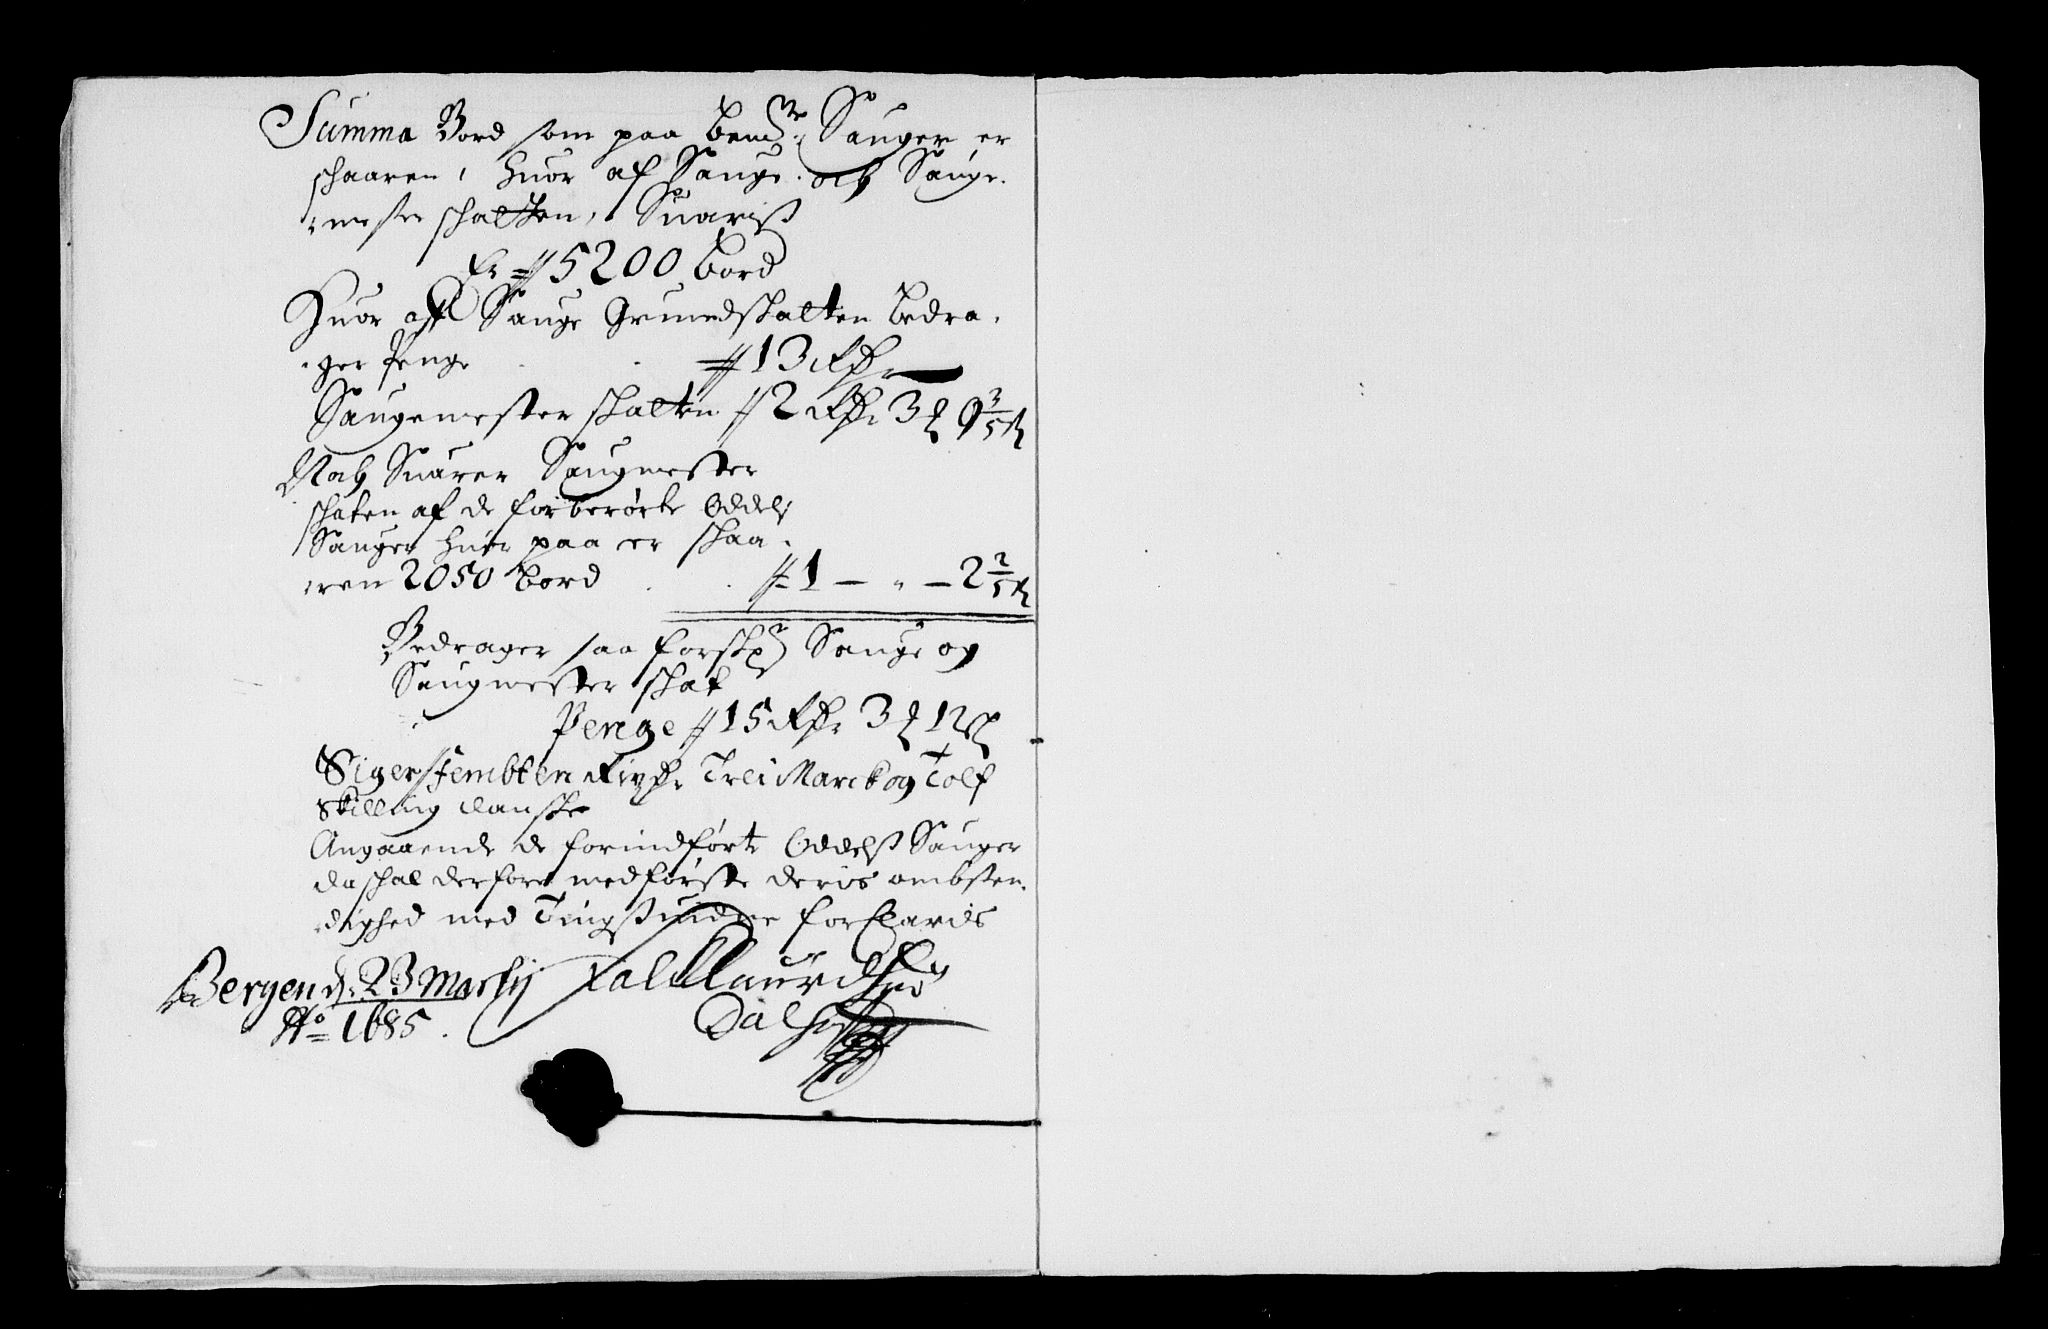 Summa Bord som paa bemte Sauger er
schaaren, huor af Sauge. och Sauge.
mester schatten, Suariß
Er # 5200 bord
Huor aff Sauge Grundschatten bedra.
ger Penge # 13 Rdr
Saugemester schatten # 2 Rdr 3 ʒ 9 3/5 ß
Noch Suarer Saugmester
schaten af de forberørte Oddels
Sauger huer paa er schaa.
ren 2050 bord # 1 — " — 2 2/5 ß
Bedrager saa forschr Sauge og
Saugmester schat
Penge # 15 Rdr 3 ʒ 12 ß
Siger fembten Rixdr Trei Marck og Tolf
Skilling danske
Angaaende de forindførte Oddelß Sauger
da schal derfore med første deris ombsten.
dighed med Tingßuidne forClaris
Bergen d. 23 Martij Lauridsen
Ao 1685.